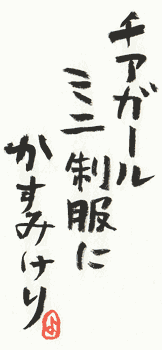 チアガール
ミニ制服に
かすみけり